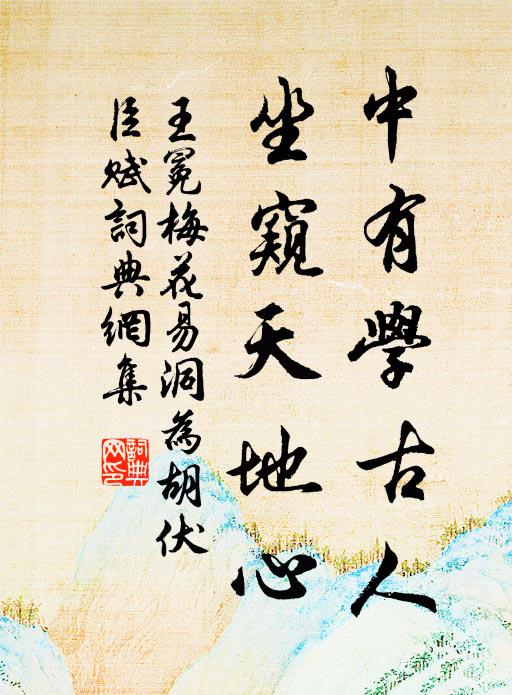 中有學古人
坐窺天地心
王冕梅花易洞為胡伏
臣賦詞典網集
詞典网印